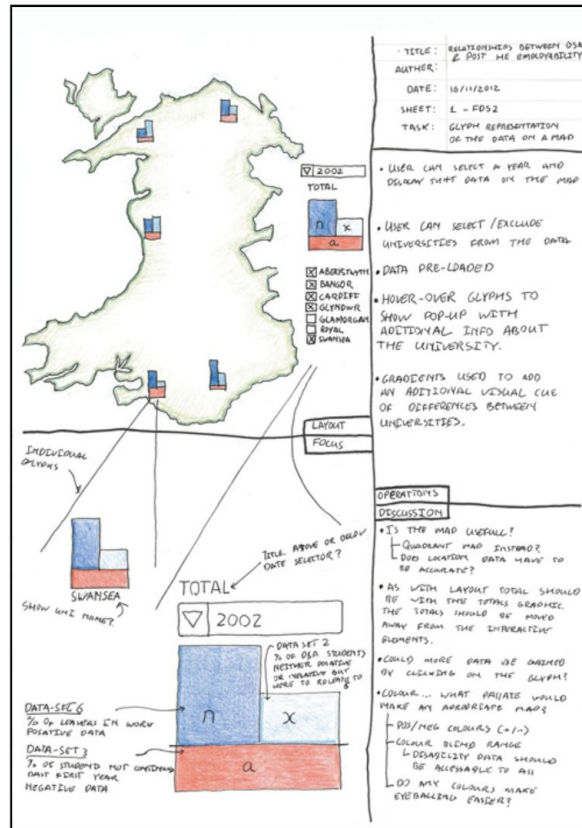 TITLE: RELATIONSHIPS BETWEEN DSA
& POST HE EMPLOYABILITY
AUTHER:
DATE: 10/11/2012
SHEET: 1 - FDS2
TASK: GLYPH REPRESENTATION
OF THE DATA ON A MAP
2002
TOTAL
n
x
a
ABERYSTWYTH
BANGOR
CARDIFF
GLYNDWR
GLAMORGAN
ROYAL
SWANSEA
LAYOUT
FOCUS
• USER CAN SELECT A YEAR AND
DISPLAY THAT DATA ON THE MAP
• USER CAN SELECT/EXCLUDE
UNIVERSITIES FROM THE DATA
• DATA PRE-LOADED
• HOVER-OVER GLYPHS TO
SHOW POP-UP WITH
ADITIONAL INFO ABOUT
THE UNIVERSITY.
• GRADIENTS USED TO ADD
AN ADITIONAL VISUAL CUE
OF DIFFERENCES BETWEEN
UNIVERSITIES.
OPERATIONS
DISCUSSION
INDIVIDUAL
GLYPHS
SWANSEA
SHOW UNI NAME?
TITLE ABOVE OR BELOW
DATE SELECTOR?
TOTAL
2002
DATA SET 2
% OF DSA STUDENTS
NEITHER POSITIVE
OR NEGATIVE BUT
HERE TO RELATE TO
n
x
a
DATA-SET 6
% OF LEAVERS IN WORK
POSITIVE DATA
DATA-SET 3
% OF STUDENTS NOT CONTINUING
PAST FIRST YEAR
NEGATIVE DATA
• IS THE MAP USEFULL?
QUADRANT MAP INSTEAD?
DOES LOCATION DATA HAVE TO
BE ACCURATE?
• AS WITH LAYOUT TOTAL SHOULD
BE WITH THE TOTALS GRAPHIC
THE TOTALS SHOULD BE MOVED
AWAY FROM THE INTERACTIVE
ELEMENTS.
• COULD MORE DATA BE GAINED
BY CLICKING ON THE GLYPH?
• COLOUR... WHAT PALLATE WOULD
MAKE AN APROPRIATE MAP?
POS/NEG COLOURS (+/-)
COLOUR BLIND RANGE
DISABILITY DATA SHOULD
BE ACCESSABLE TO All
DO ANY COLOURS MAKE
EYEBALLING EASIER?